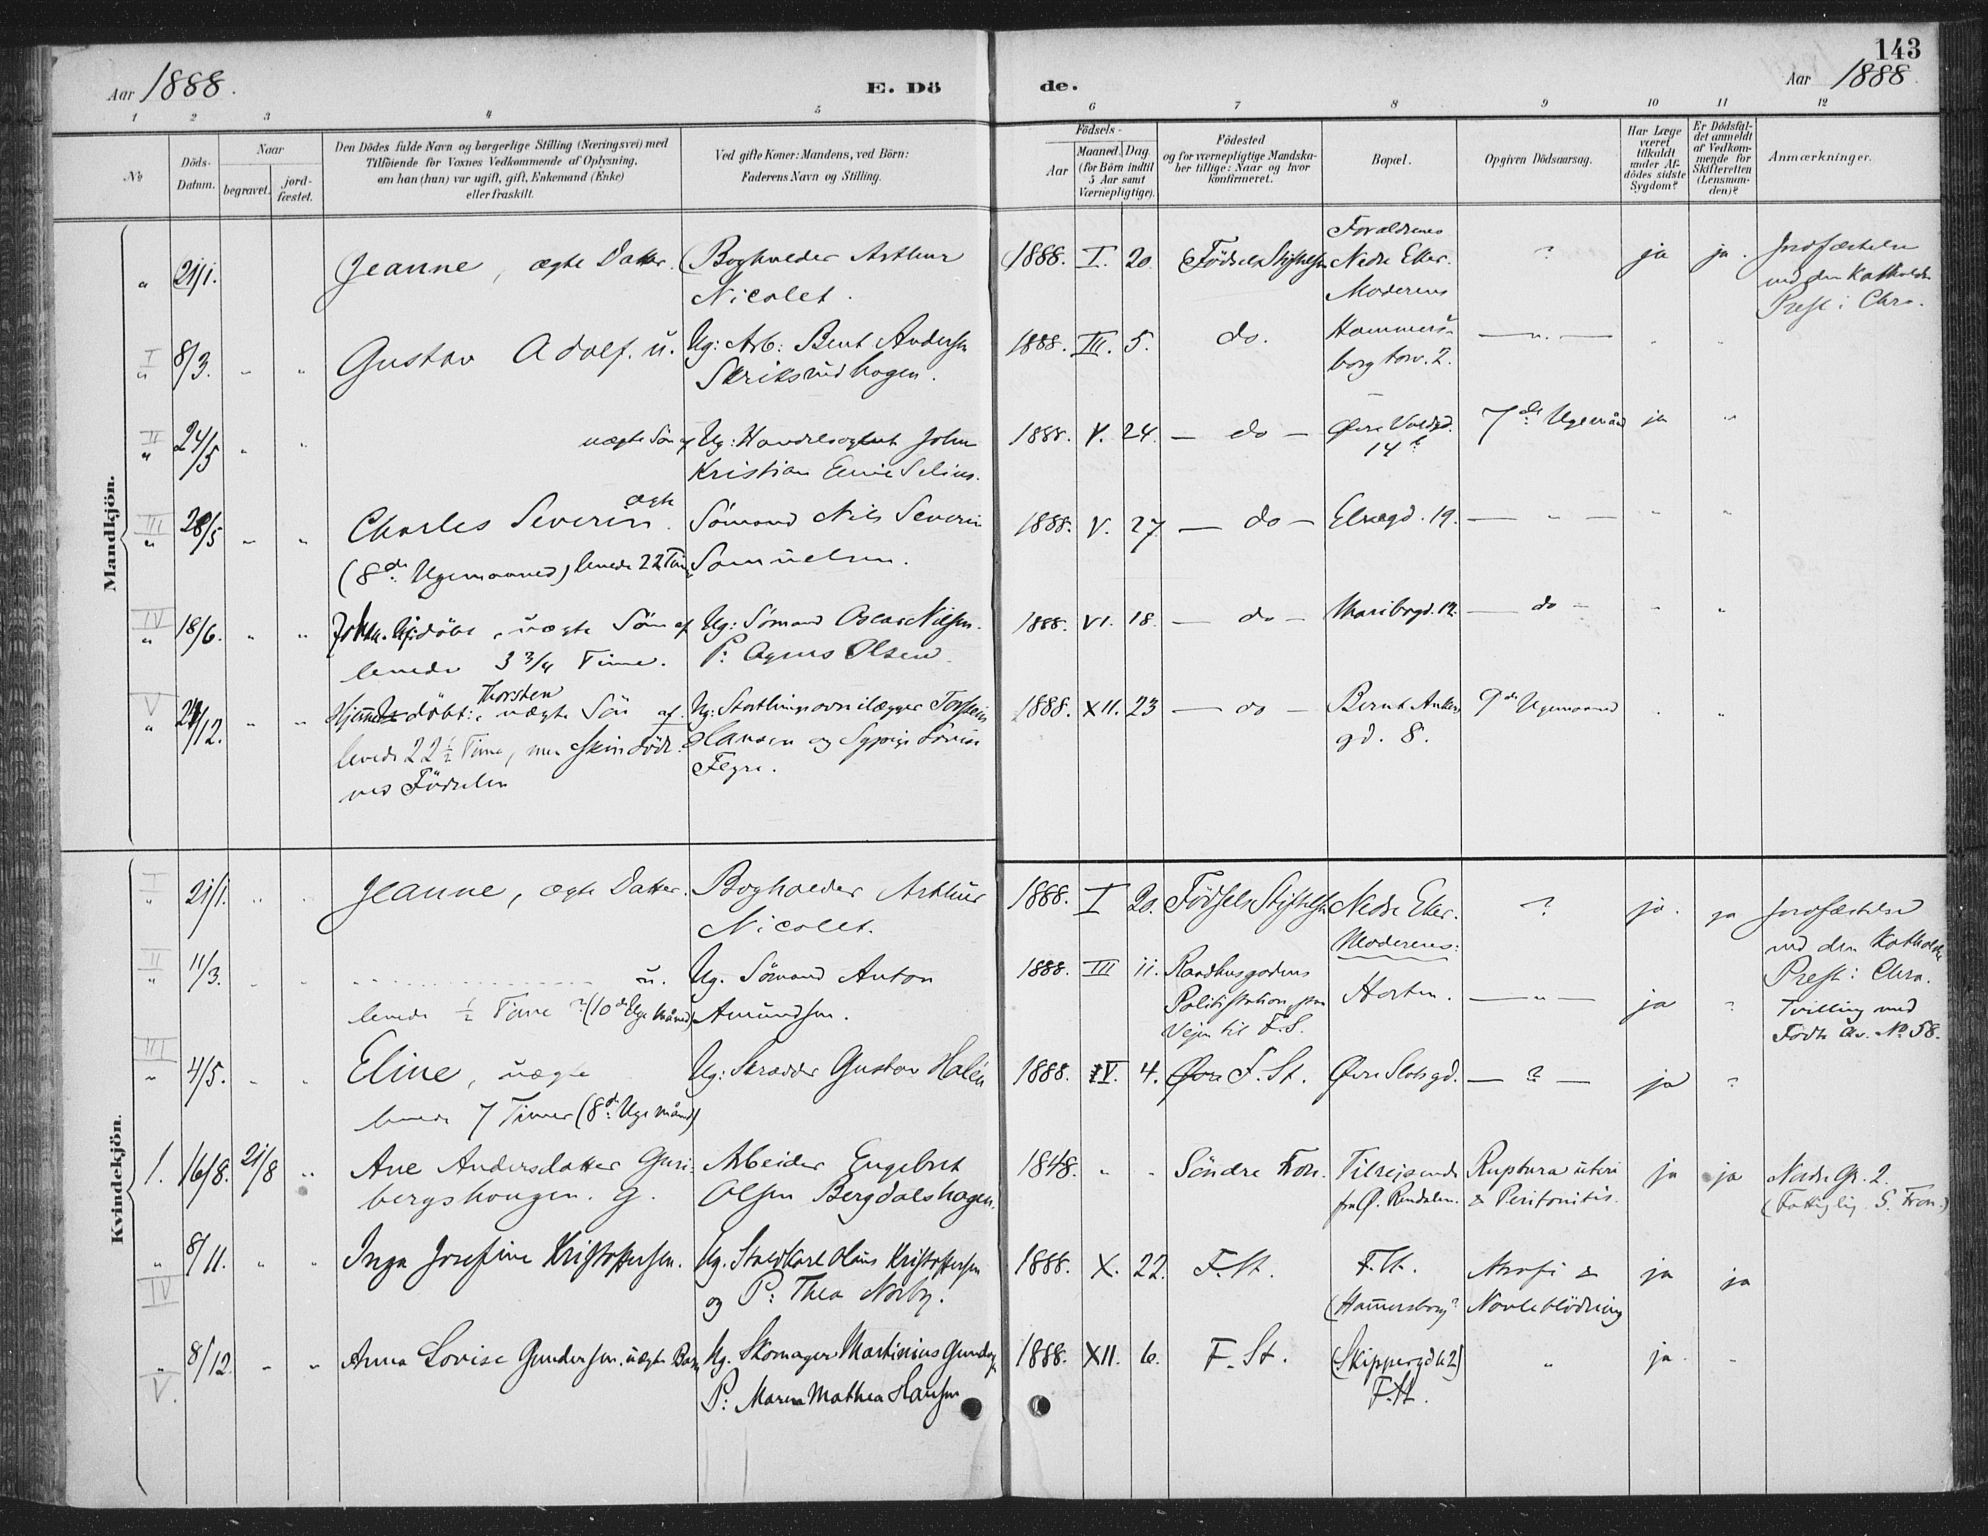 143
Aar 1888.
E. Dö
de.
Aar 1888
1 2 3 4 5 6 7 8 9 10 11 12
No
Döds-
Datum.
Naar
begravet.
jord-
fæstet.
Den Dödes fulde Navn og borgerlige Stilling (Næringsvei) med
Tilföiende for Voxnes Vedkommende af Oplysning,
om han (hun) var ugift, gift, Enkemand (Enke)
eller fraskilt.
Ved gifte Koner: Mandens, ved Börn:
Faderens Navn og Stilling.
Födsels-
Aar
Maaned. Dag
(for Börn indtil
5 Aar samt
Værnepligtige).
Födested
og for værnepligtige Mandska-
ber tillige: Naar og hvor
konfirmeret.
Bopæl.
Opgiven Dödsaarsag.
Har Læge
været
tilkaldt
under Af-
dödes sidste
Sygdom?
Er Dödsfal-
det anmeldt
af Vedkom-
mende for
Skifteretten
(Lensman-
den)?
Anmærkninger.
Mandkjön.
" 21/1. Jeanne, ægte Datter. Bogholder Arthur
Nicolet.
1888. I. 20. Födsels Stiftelsen
Forældrenes
Nedre Eker.
? ja ja. Jordfæstelse
ved den Katholske
Prest i Chra.
I 8/3. " " Gustav Adolf. u. Ug: Arb: Bent Andersen
1888. III. 5. do.
Moderens
Hammers-
borg torv. 2.
— " — " "
II 24/5 " " uægte Søn af Ug: Handelsagent John
Kristian
1888. V. 24. — do — Øvre Voldgd.
14
7de Ugemåned ja "
III 28/5 " " Charles Severin. ægte Sömand Nils Severin
(8de Ugemaaned) levede 22 Tim Samuelsen.
1888. V. 27 — do — Elvegd. 19. — " — " "
IV 18/6. " " döbt, uægte Sön af Ug: Sömand Oscar Nilsen.
levede 3 3/4 Time. P: Agnes Olsen.
1888. VI. 18. — do — Maribogd. 12. — do — " "
V 24/12. " " Hjemmedöbt: Thorsten uægte Sön af Torstein
levede 22 1/2 Time, men skindöd Hansen og Sypige Lovise
ved Födselen Fegre.
1888. XII. 23 — do — Bernt Ankers
gd. 8.
9de Ugemaaned " "
Kvindekjön.
I 21/1. " " Jeanne, ægte Datter. Bogholder Arthur
Nicolet.
1888. I 20. Födsels Stiftelsen Nedre Eker. ? ja. ja Jordfæstelse
ved den Katholske
Prest i Chra.
II 11/3. " " u. Ug. Sömand Anton
levede 1/2 Time (10de Uge Måned) Amundsen.
1888. III 11. Raadhusgadens
Politistation, paa
Vejen til F.S.
Moderens:
Horten.
— " — ja " Tvilling med
Födte No 58.
III 4/5. " " Eline, uægte Ug: Skrædder Gustav Halén
levede 7 Timer (8de Uge Måned)
1888. V. 4. F. St. Øvre Slotsgd. — ? — ja "
1. 16/8. 21/8 " Ane Andersdatter Guri- Arbeider Engebret
bergshougen. g. Olsen Bergdalshagen.
1848. " " Söndre Fron. Tilreisende
fra Ø. Rendalen.
Ruptura uteri
& Peritonitis.
ja ja Nordre Gr. 2.
(Fattiglig. S. Fron.)
IV 8/11. " " Inga Josefine Kristoffersen. Ug. Staldkarl Olaus Kristoffersen
og P: Thea Norby.
1888. X. 22. F. St. F. St.
(Hammersborg?
Atrofi &
Navleblödning
ja ja
V. 8/12. " " Anna Lovise Gundersen. uægte Barn Ug. Skomager Martinius Gundersen
P: Maren Mathea Hansen
1888. XII. 6. F. St. (Skippergd 2)
F. St.
" ja. "